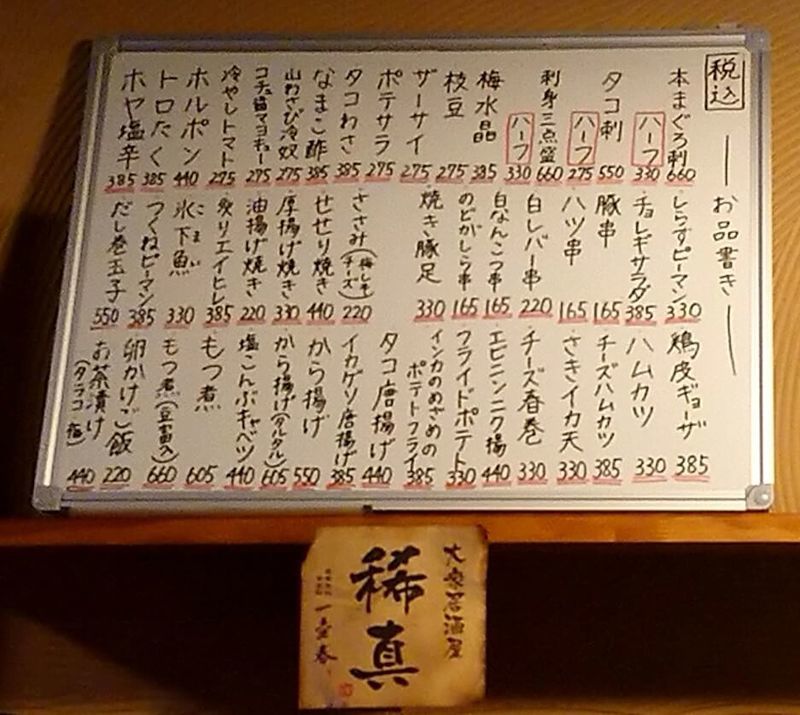 税込
お品書き
本まぐろ刺 660
ハーフ 330
タコ刺 550
ハーフ 275
刺身三点盛 660
ハーフ 330
梅水晶 385
枝豆 275
ザーサイ 275
ポテサラ 275
タコわさ 385
なまこ酢 385
山わさび冷奴 275
コチュ醤マヨキュー 275
冷やしトマト 275
ホルポン 440
トロたく 385
ホヤ塩辛 385
しらすピーマン 330
チョレギサラダ 385
豚串 165
ハツ串 165
白レバー串 220
白なんこつ串 165
のどがしら串 165
焼き豚足 330
ささみ(梅しそ チーズ) 220
せせり焼き 440
厚揚げ焼き 330
油揚げ焼き 220
炙りエイヒレ 385
氷下魚 330
こまい
つくねピーマン 385
だし巻玉子 550
鶏皮ギョーザ 385
ハムカツ 330
チーズハムカツ 385
さきイカ天 330
チーズ春巻 330
エビニンニク揚 440
フライドポテト 330
インカのめざめの
ポテトフライ 385
タコ唐揚げ 440
イカゲソ唐揚げ 385
から揚げ 550
から揚げ(タルタル) 605
塩こんぶキャベツ 440
もつ煮 605
もつ煮(豆富入) 660
卵かけご飯 220
お茶漬け
(タラコ 梅) 440
大衆居酒屋
稀真
一壷春